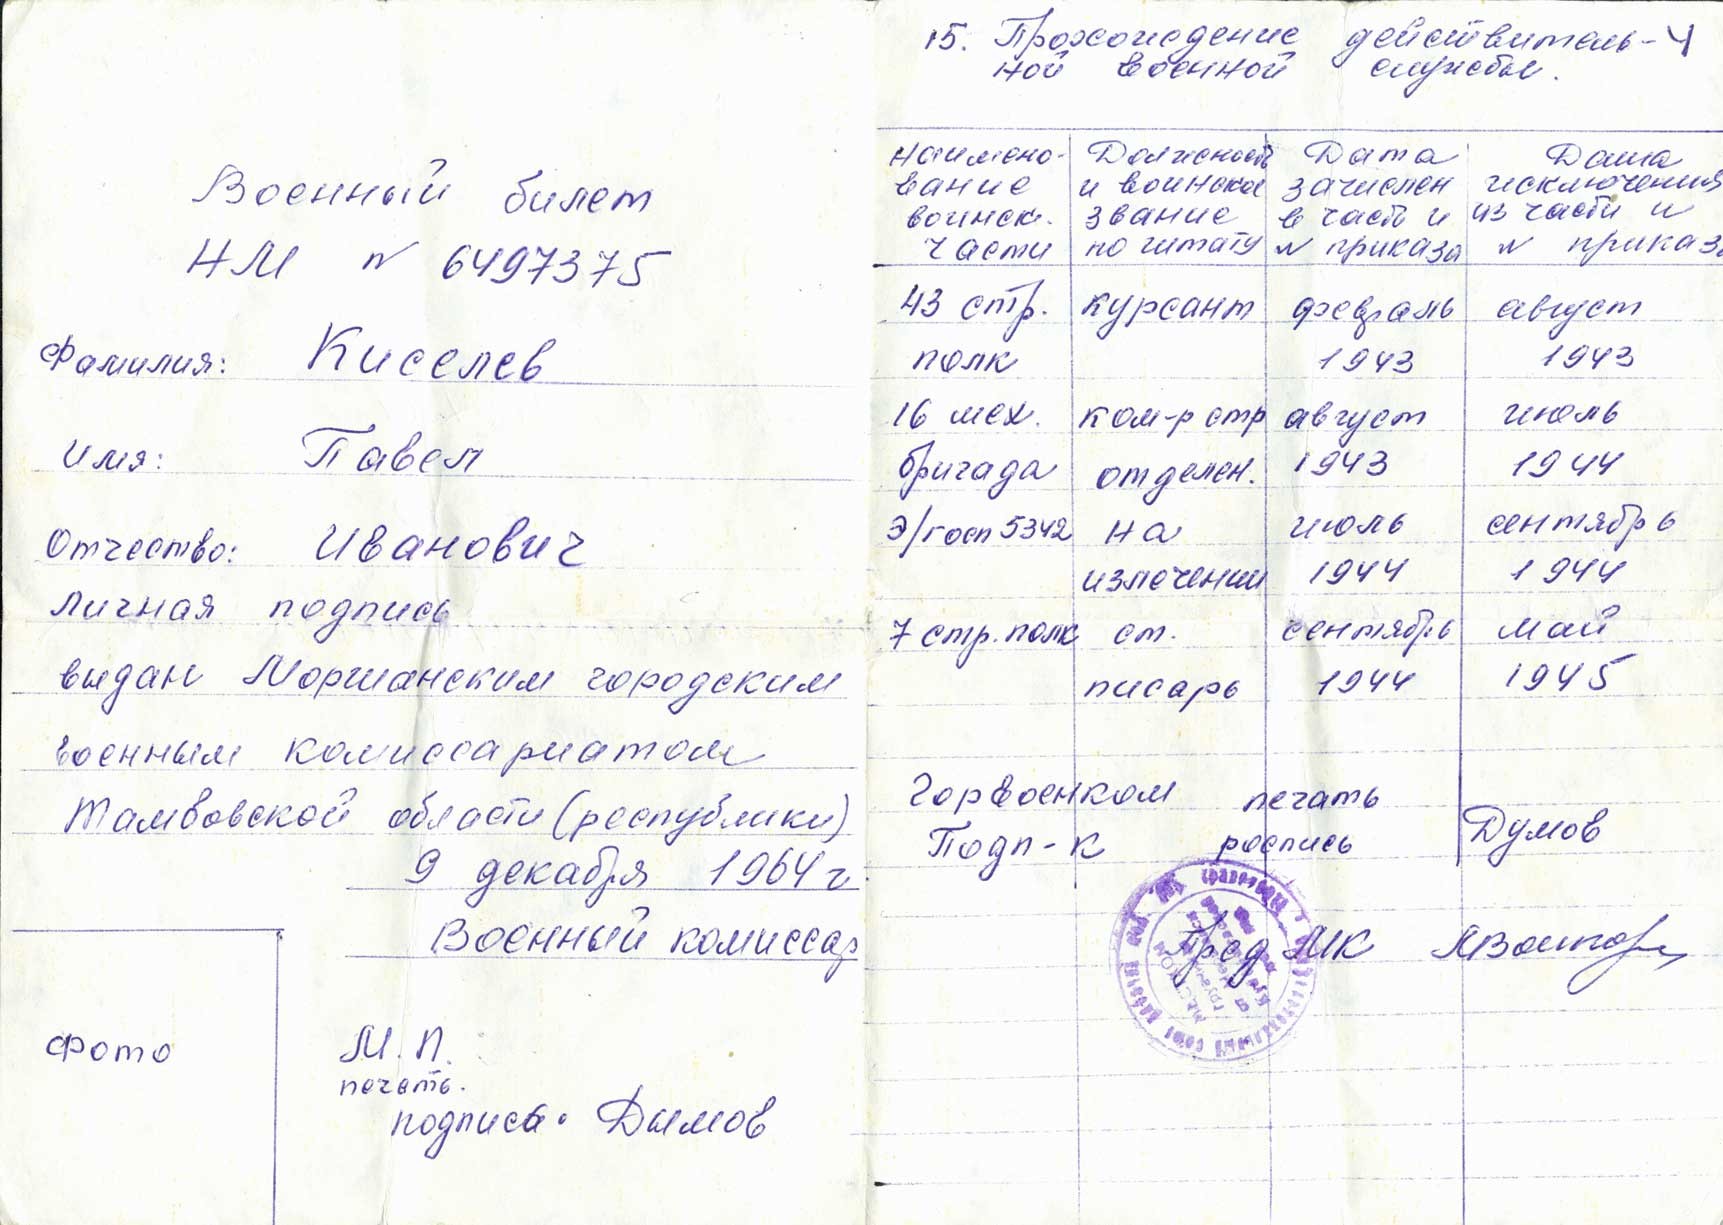 Военный билет
НМ № 6497375
Фамилия: Киселев
Имя: Павел
Отчество: Иванович
Личная подпись
выдан Моршанским городским
военным комиссариатом
Тамбовской области (республики)
9 декабря 1964 г
Военный комиссар
Фото
М. П.
печать.
подпись. Дымов
4
15. Прохождение действитель-
ной военной службы.
Наимено-
вание
воинск.
части
Должность
и воинское
звание
по штату
Дата
зачислен
в часть и
№ приказа
Дата
исключения
из части и
№ приказ.
43 стр. курсант февраль август
полк 1943 1943
16 мех. ком-р стр август июль
бригада отделен. 1943 1944
Э/госп 5342 на июль сентябрь
излечении 1944 1944
7 стр. полк ст. сентябрь май
писарь 1944 1945
Горвоенком печать
Подп-к роспись Думов
Пред МК
МЕСТКОМ